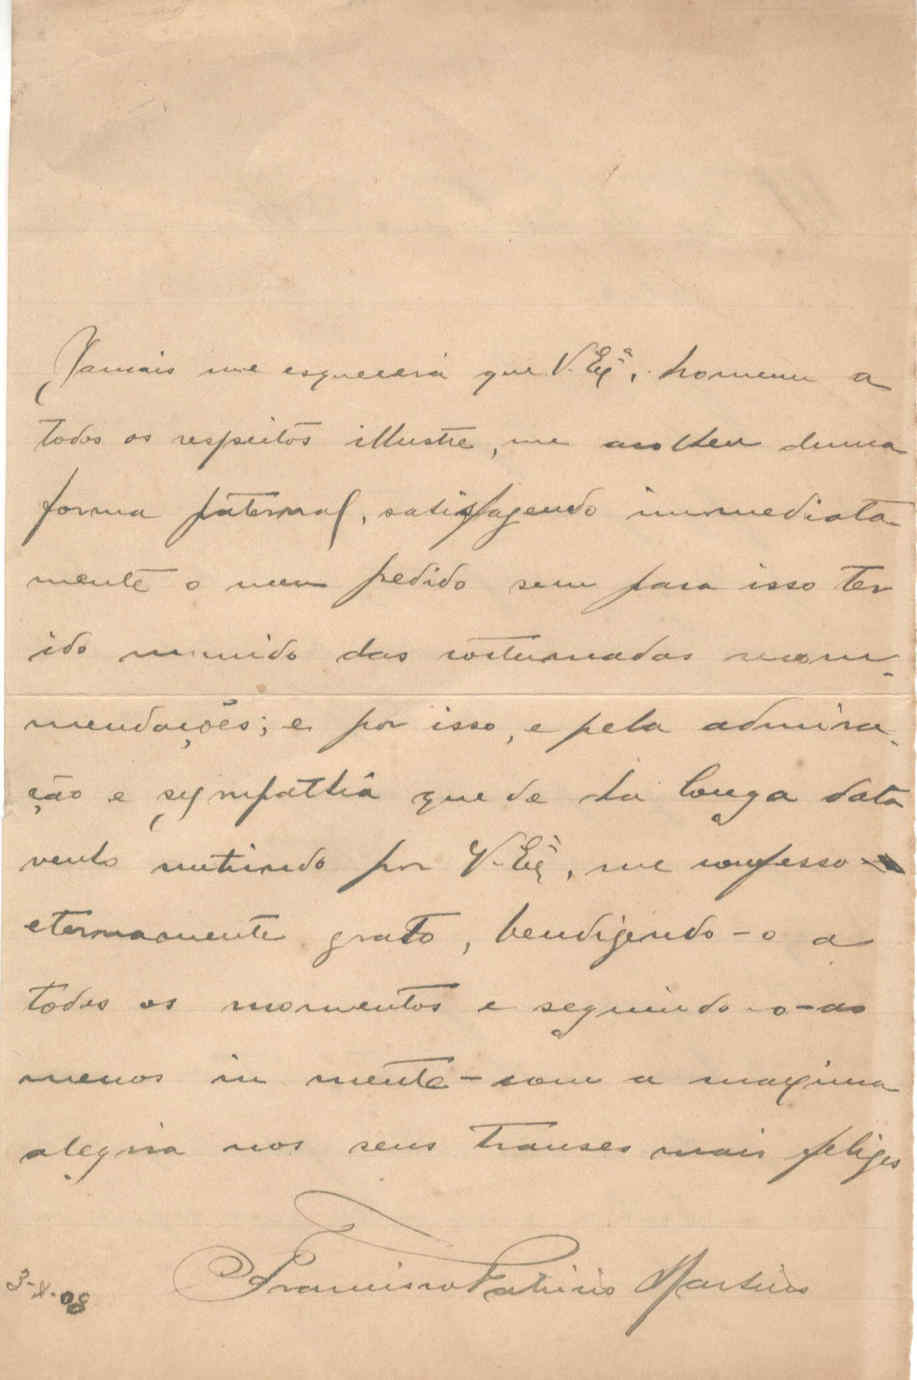 Jamais me esquecerá que V. Exª, homem a
todos os respeitos illustre, me acolheu duma
forma paternal, satisfazendo immediata-
mente o meu pedido sem para isso ter
ido munido das costumadas recom-
mendações; e por isso, e pela admira-
ção e sympathia que de ha longa data
venho nutrindo por V. Exª, me confesso
eternamente grato, bendizendo-o a
todos os momentos e seguindo-o-ao
menos in mente-com a maxima
alegria nos seus transes mais felizes
Francisco Patricio Martins
3-X-08